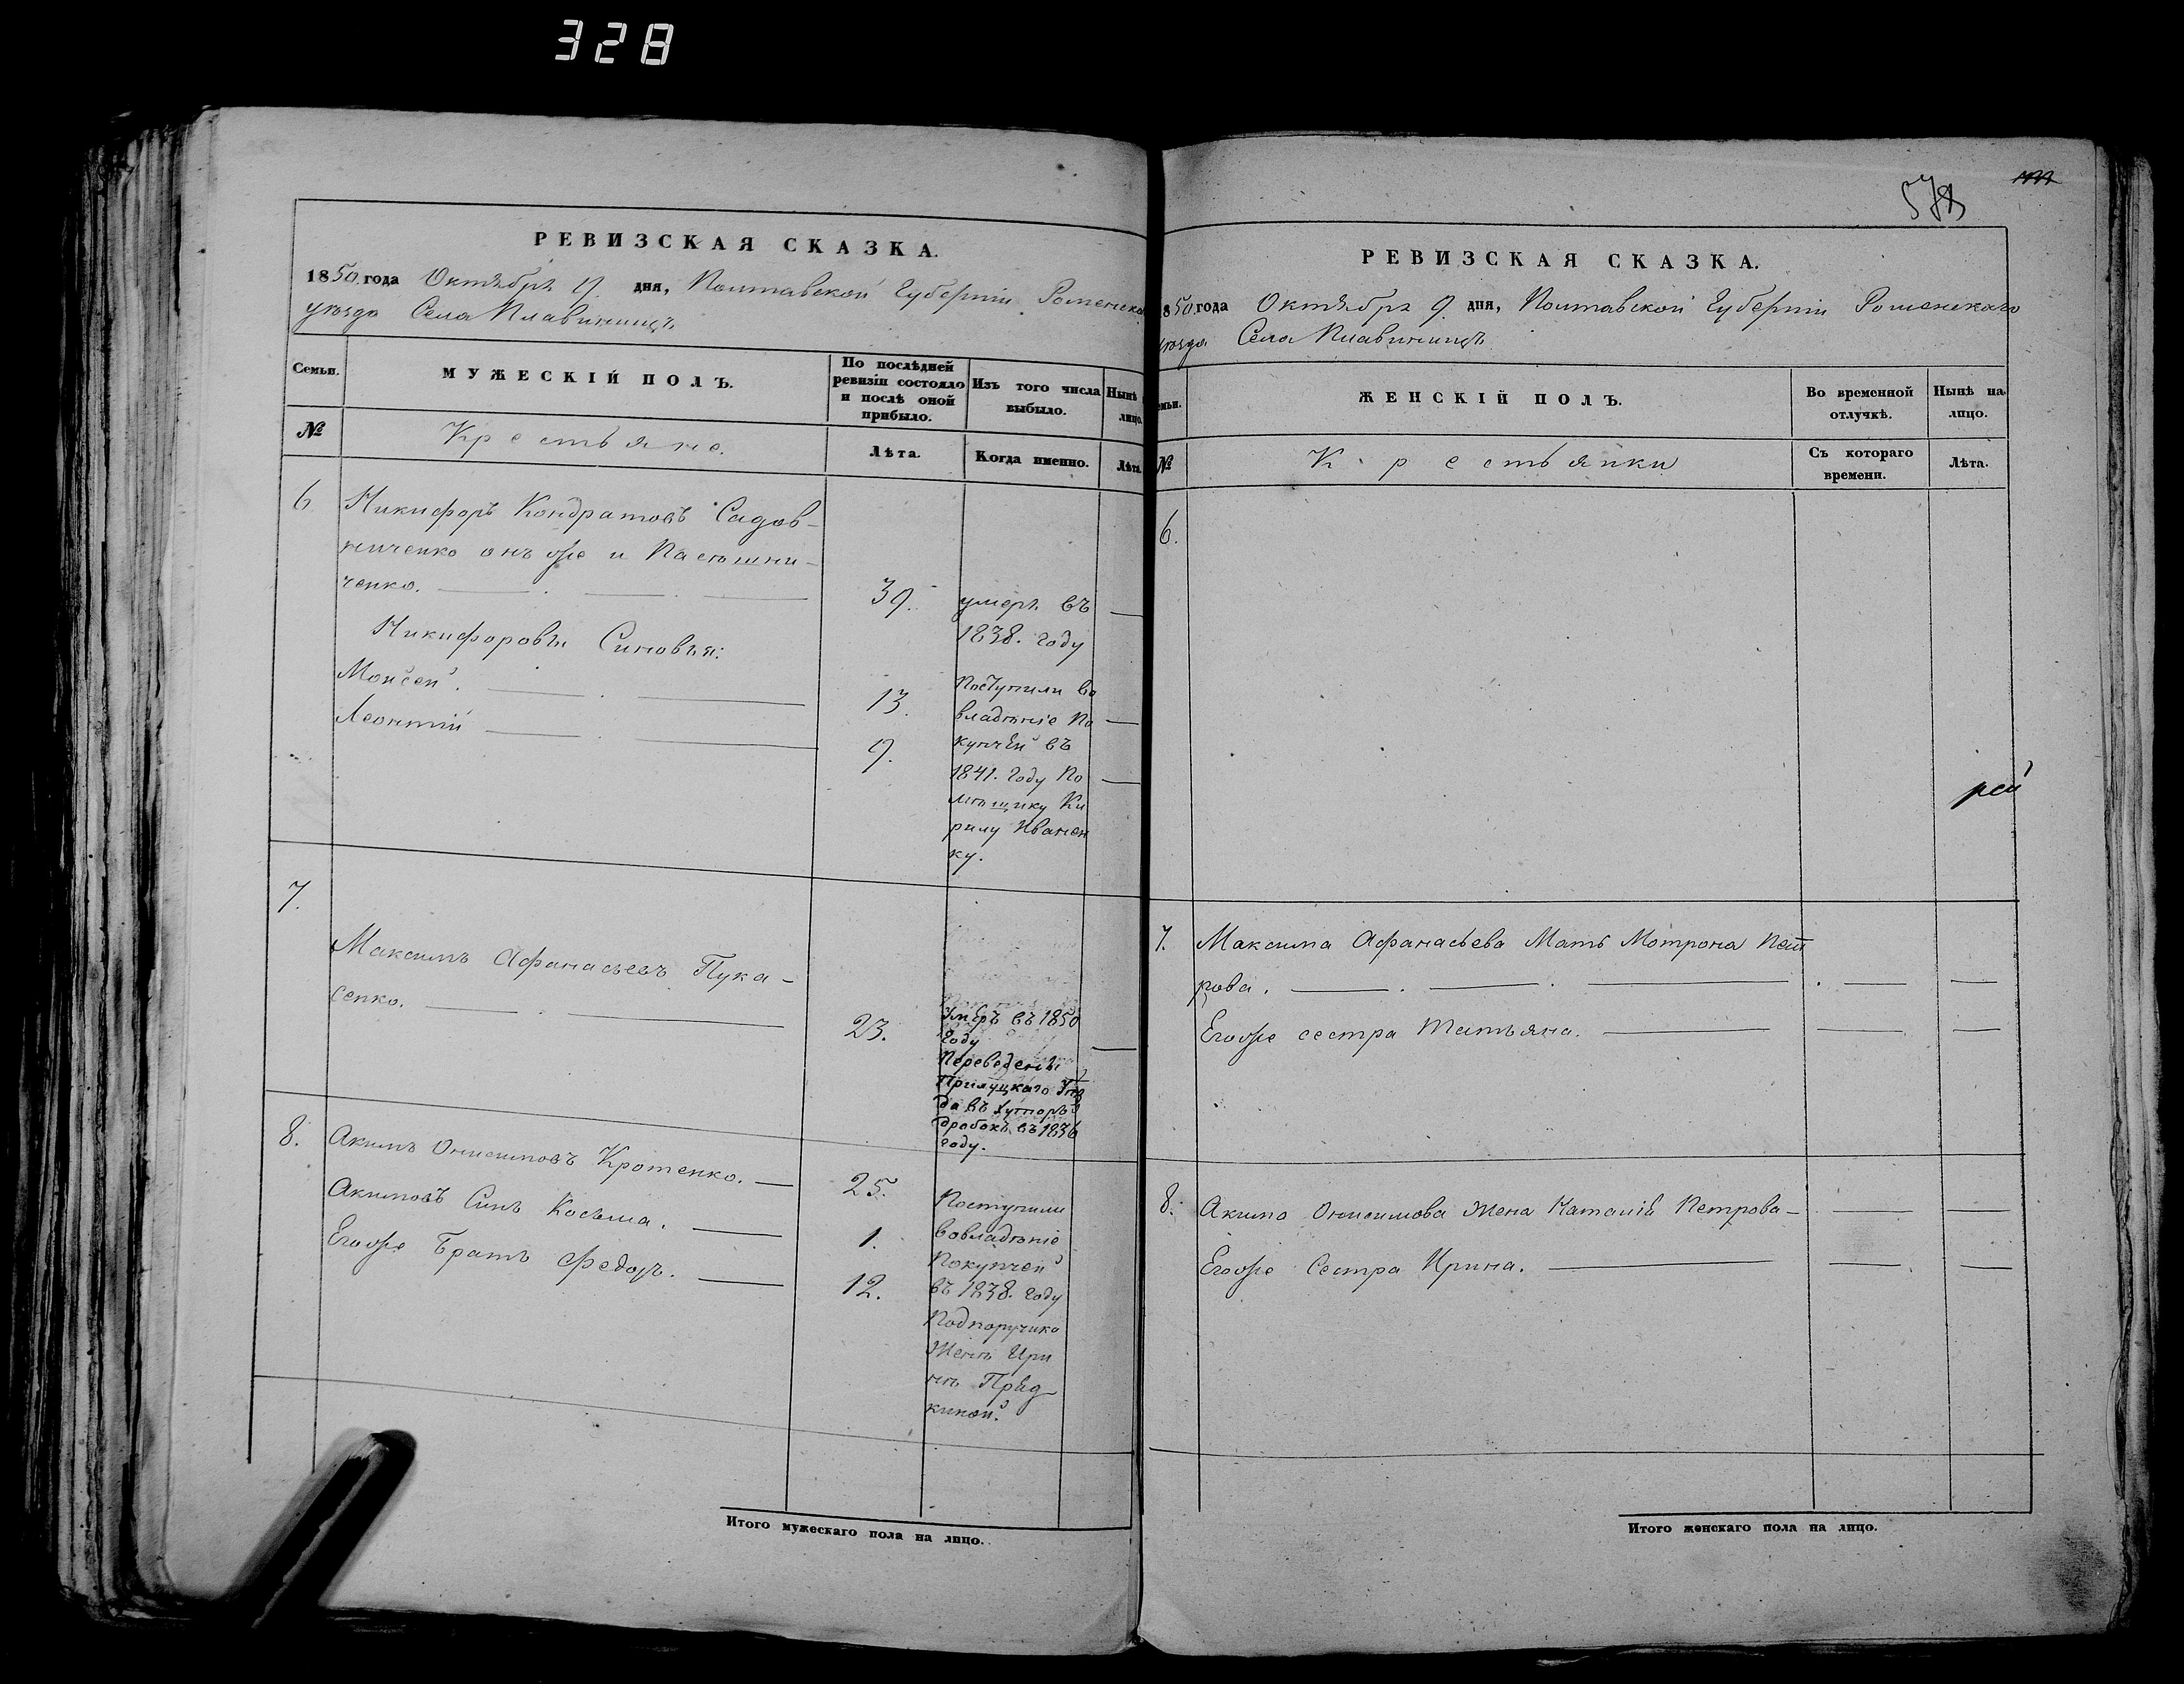 328
РЕВИЗСКАЯ СКАЗКА.
1850 года Октября 9. дня, Полтавской Губерніи Роменска
уѣзда Села Плавинищъ
Семьи.
МУЖЕСКІЙ ПОЛЪ.
По послѣдней
ревизіи состояло
и послѣ оной
прибыло.
Изъ того числа
выбыло.
Нынѣ
лицо.
№
Крестьяне.
Лѣта.
Когда именно.
Лѣта.
6
Никифоръ Кондратовъ Садов-
ниченко онъ же и Пасѣшни-
ченко.
39.
умеръ въ
1838. году
Никифоровы Сыновья:
Моисей.
13.
Леонтій
9.
Поступили во
владѣніе По
купчей въ
1841. году По
мѣщику Ки
рилу Иванен
ку.
7.
Максимъ Афанасьевъ Пука-
сенко.
23.
Умеръ въ 1850
году
Переведенъ
Прилуцкаго Уѣз
да въ хуторъ
дробокъ въ 1836
году.
8.
Акимъ Онисимовъ Кротенко.
25.
Акимовъ Сынъ Косьма.
1.
Егоже Братъ Федоръ.
12.
Поступили
во владѣніе
Покупчей
въ 1838. году
Подпоручика
Женѣ Ири
нѣ Пред
киной.
Итого мужескаго пола на лицо.
578
РЕВИЗСКАЯ СКАЗКА.
850 года Октября 9. дня, Полтавской Губерніи Роменскаго
уѣзда Села Плавинищъ
емьи.
ЖЕНСКІЙ ПОЛЪ.
Во временной
отлучкѣ.
Нынѣ на
лицо.
№
Крестьянки
Съ котораго
времени.
Лѣта.
6.
рей
7.
Максима Афанасьева Мать Мотрона Пет
рова.
Егоже сестра Татьяна.
8.
Акима Онисимова Жена Наталія Петрова
Егоже Сестра Ирина.
Итого женскаго пола на лицо.